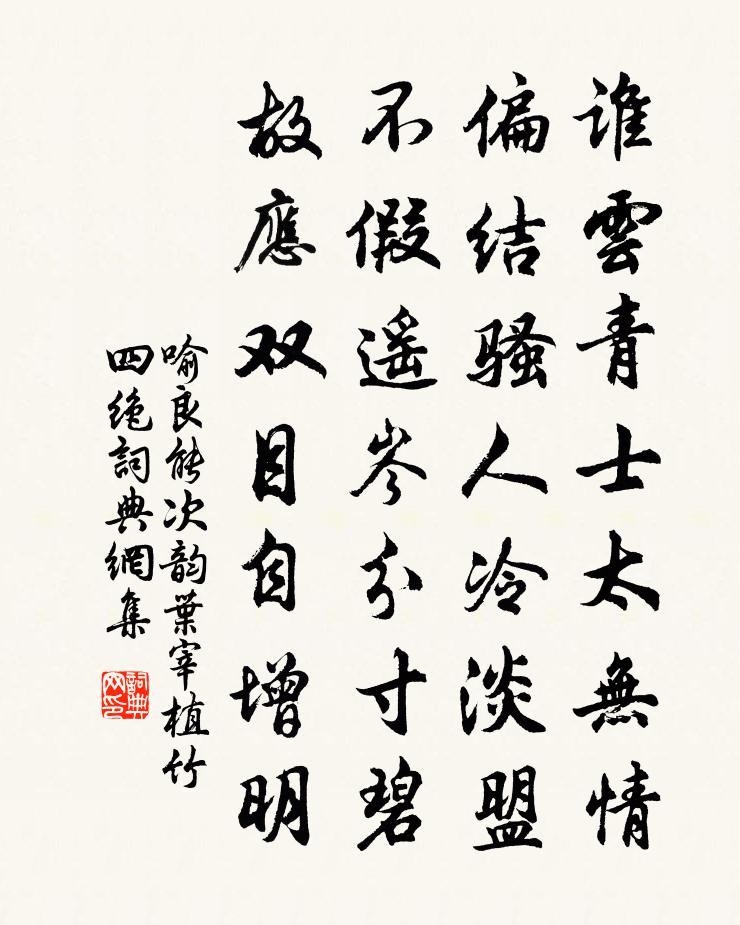 誰雲青士太無情
偏结騷人冷淡盟
不假遥岑分寸碧
故應双目自增明
喻良能次韵葉宰植竹
四绝詞典網集
詞典网印